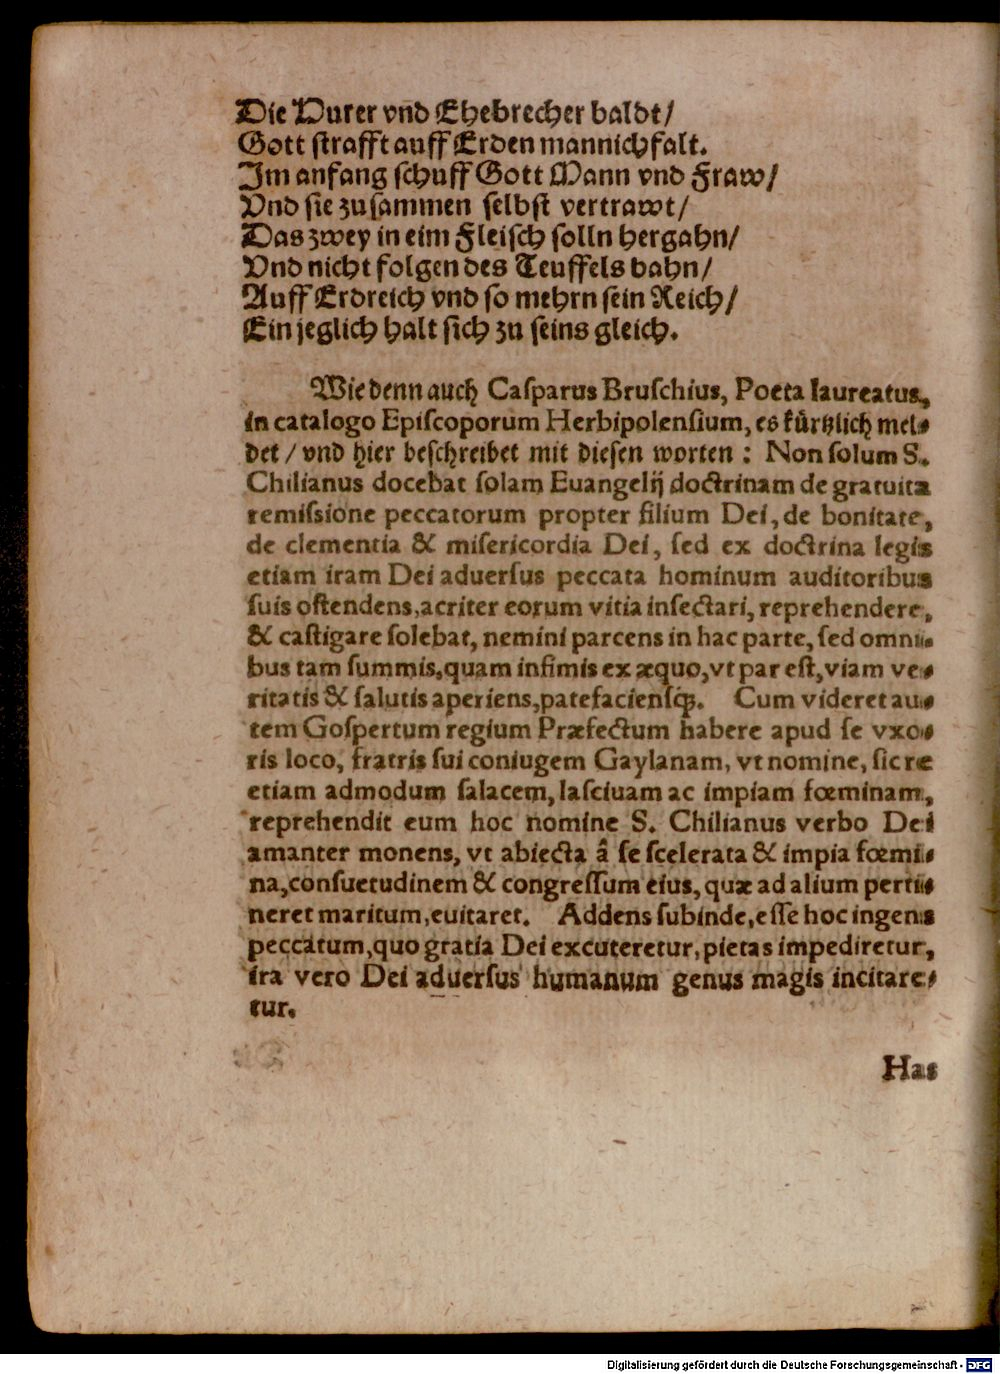 Die Hurer vnd Ehebrecher baldt/
Gott strafft auff Erden mannichfalt.
Im anfang schuff Gott Mann vnd Fraw/
Vnd sie zusammen selbst vertrawt/
Das zwey in eim Fleisch solln hergahn/
Vnd nicht folgen des Teuffels bahn/
Auff Erdreich vnd so mehrn sein Reich/
Ein jeglich halt sich zu seins gleich.
Wie denn auch Caſparus Bruſchius, Poeta laureatus,
in catalogo Epiſcoporum Herbipolenſium, es kürtzlich mel⸗
det / vnd hier beſchreibet mit dieſen worten : Non ſolum S.
Chilianus docebat ſolam Euangelij doctrinam de gratuita
remiſsione peccatorum propter filium Dei, de bonitate,
de clementia & miſericordia Dei, ſed ex doctrina legis
etiam iram Dei aduerſus peccata hominum auditoribus
ſuis oſtendens, acriter eorum vitia inſectari, reprehendere,
& caſtigare ſolebat, nemini parcens in hac parte, ſed omni⸗
bus tam ſummis, quam infimis ex æquo, vt par eſt, viam ve⸗
ritatis & ſalutis aperiens, patefaciensq́;. Cum videret au⸗
tem Goſpertum regium Præfectum habere apud ſe vxo⸗
ris loco, fratris ſui coniugem Gaylanam, vt nomine, ſic re
etiam admodum ſalacem, laſciuam ac impiam fœminam,
reprehendit eum hoc nomine S. Chilianus verbo Dei
amanter monens, vt abiecta â ſe ſcelerata & impia fœmi⸗
na, conſuetudinem & congreſſum eius, quæ ad alium perti⸗
neret maritum, euitaret. Addens ſubinde, eſſe hoc ingens
peccatum, quo gratia Dei excuteretur, pietas impediretur,
ira vero Dei aduerſus humanum genus magis incitare⸗
tur.
Has
Digitalisierung gefördert durch die Deutsche Forschungsgemeinschaft - DFG